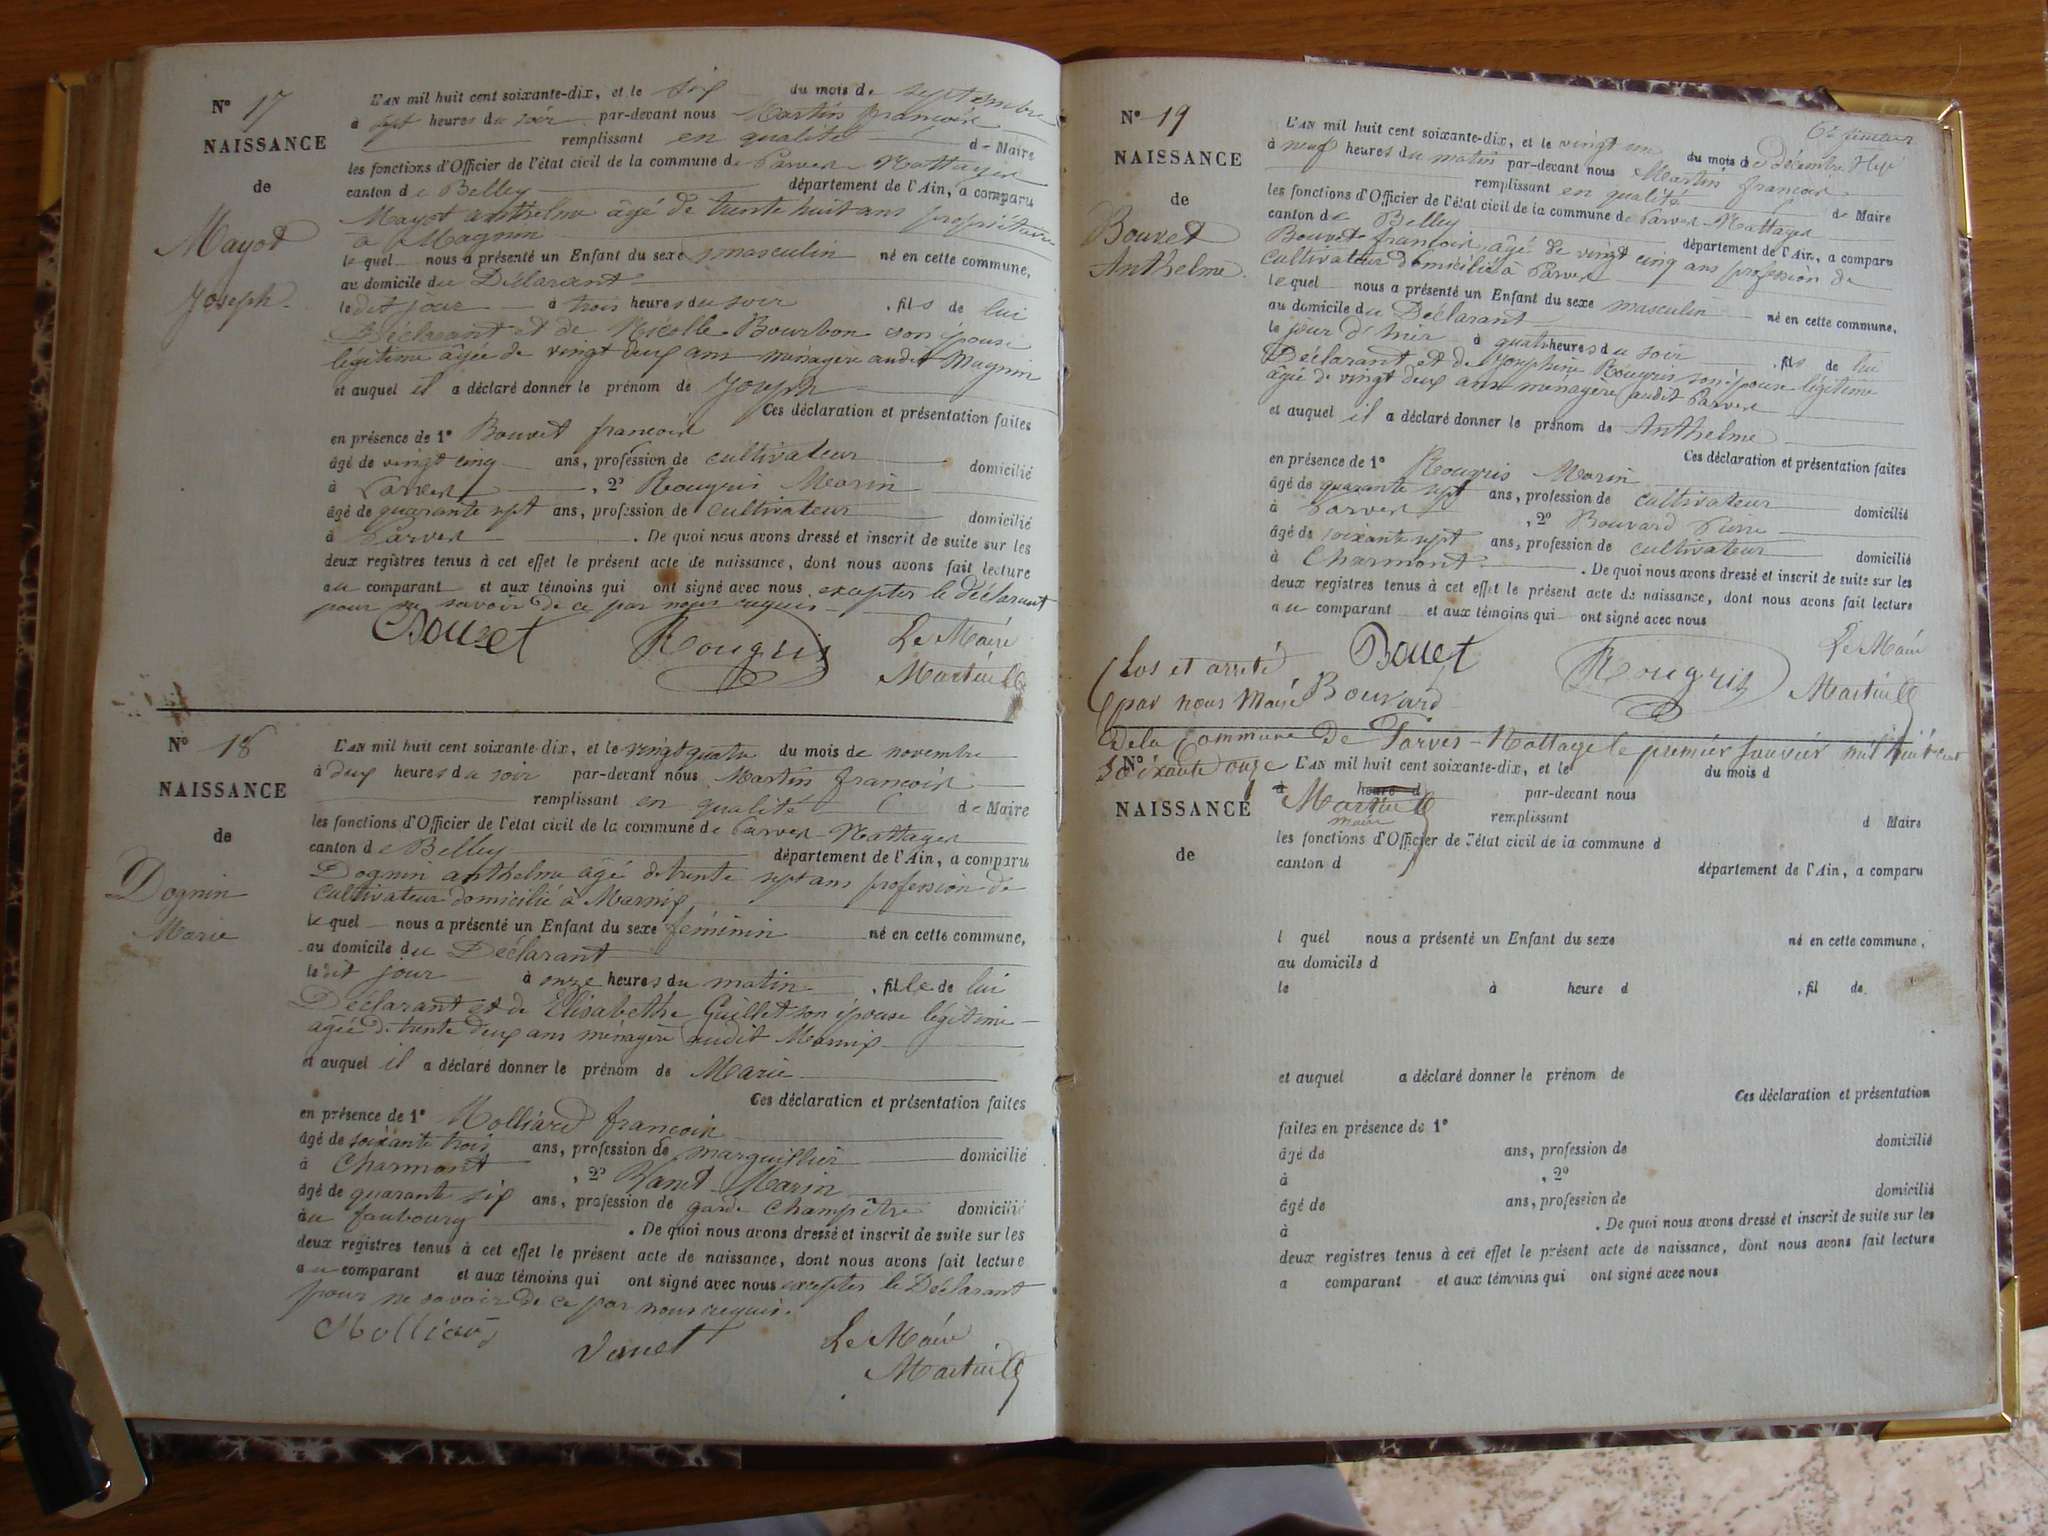 N° 17
NAISSANCE
de
Mayot
Joseph.
L'AN mil huit cent soixante-dix, et le six du mois de septembre
à sept heures du soir par-devant nous Martin françois
remplissant en qualité de Maire
les fonctions d'Officier de l'état civil de la commune de Parves Nattages
canton de Belley département de l'Ain, a comparu
Mayot anthelme âgé de trente huit ans propriétaire
à Magnin
lequel nous a présenté un Enfant du sexe masculin né en cette commune,
au domicile du Déclarant
ledit jour à trois heures du soir , fils de lui
Déclarant et de Nicolle Bourbon son épouse
légitime âgée de vingt deux ans ménagère audit Magnin
et auquel il a déclaré donner le prénom de Joseph
Ces déclaration et présentation faites
en présence de 1° Bouvet françois
âgé de vingt cinq ans, profession de cultivateur domicilié
à Parves , 2° Rougris Marin
âgé de quarante sept ans, profession de cultivateur domicilié
à Parves . De quoi nous avons dressé et inscrit de suite sur les
deux registres tenus à cet effet le présent acte de naissance, dont nous avons fait lecture
au comparant et aux témoins qui ont signé avec nous excepter le déclarant
pour ne savoir de ce par nous requis
Bouvet Rougris Le Maire
Martin
N° 18
NAISSANCE
de
Dognin
Marie
L'AN mil huit cent soixante-dix, et le vingt quatre du mois de novembre
à deux heures du soir par-devant nous Martin françois
remplissant en qualité de Maire
les fonctions d'Officier de l'état civil de la commune de Parves Nattages
canton de Belley département de l'Ain, a comparu
Dognin anthelme âgé de trente sept ans profession de
cultivateur domicilié à Marnix
lequel nous a présenté un Enfant du sexe féminin né en cette commune,
au domicile du Déclarant
ledit jour à onze heures du matin , fille de lui
Déclarant et de Elisabethe Guillet son épouse légitime
âgée de trente deux ans ménagère audit Marnix
et auquel il a déclaré donner le prénom de Marie
Ces déclaration et présentation faites
en présence de 1° Molliard françois
âgé de soixante trois ans, profession de marguillier domicilié
à Charmont , 2° Vanet Marin
âgé de quarante six ans, profession de garde Champêtre domicilié
au faubourg . De quoi nous avons dressé et inscrit de suite sur les
deux registres tenus à cet effet le présent acte de naissance, dont nous avons fait lecture
au comparant et aux témoins qui ont signé avec nous excepter le Déclarant
pour ne savoir de ce par nous requis.
Molliard Vanet Le Maire
Martin
N° 19
NAISSANCE
de
Bouvet
Anthelme
L'AN mil huit cent soixante-dix, et le vingt un du mois de décembre
à neuf heures du matin par-devant nous Martin françois
remplissant en qualité de Maire
les fonctions d'Officier de l'état civil de la commune de Parves Nattages
canton de Belley département de l'Ain, a comparu
Bouvet françois âgé de vingt cinq ans profession de
cultivateur domicilié à Parves
lequel nous a présenté un Enfant du sexe masculin né en cette commune,
au domicile du Déclarant
le jour d'hier à quatre heures du soir , fils de lui
Déclarant et de Josephine Rougris son épouse légitime
âgée de vingt deux ans ménagère audit Parves
et auquel il a déclaré donner le prénom de Anthelme
Ces déclaration et présentation faites
en présence de 1° Rougris Marin
âgé de quarante sept ans, profession de cultivateur domicilié
à Parves , 2° Bouvard Pierre
âgé de soixante sept ans, profession de cultivateur domicilié
à Charmont . De quoi nous avons dressé et inscrit de suite sur les
deux registres tenus à cet effet le présent acte de naissance, dont nous avons fait lecture
au comparant et aux témoins qui ont signé avec nous
Bouvet Rougris Le Maire
Bouvard Martin
Clos et arreté
par nous Maire
De la Commune de Parves-Nattage le premier Janvier mil huit cent
soixante onze
Martin
maire
N°
NAISSANCE
de
L'AN mil huit cent soixante-dix, et le du mois d
à heure d par-devant nous
remplissant d Maire
les fonctions d'Officier de l'état civil de la commune d
canton d département de l'Ain, a comparu
l quel nous a présenté un Enfant du sexe né en cette commune,
au domicile d
le à heure d , fil de
et auquel a déclaré donner le prénom de
Ces déclaration et présentation
faites en présence de 1°
âgé de ans, profession de domicilié
à , 2°
âgé de ans, profession de domicilié
à . De quoi nous avons dressé et inscrit de suite sur les
deux registres tenus à cet effet le présent acte de naissance, dont nous avons fait lecture
a comparant et aux témoins qui ont signé avec nous